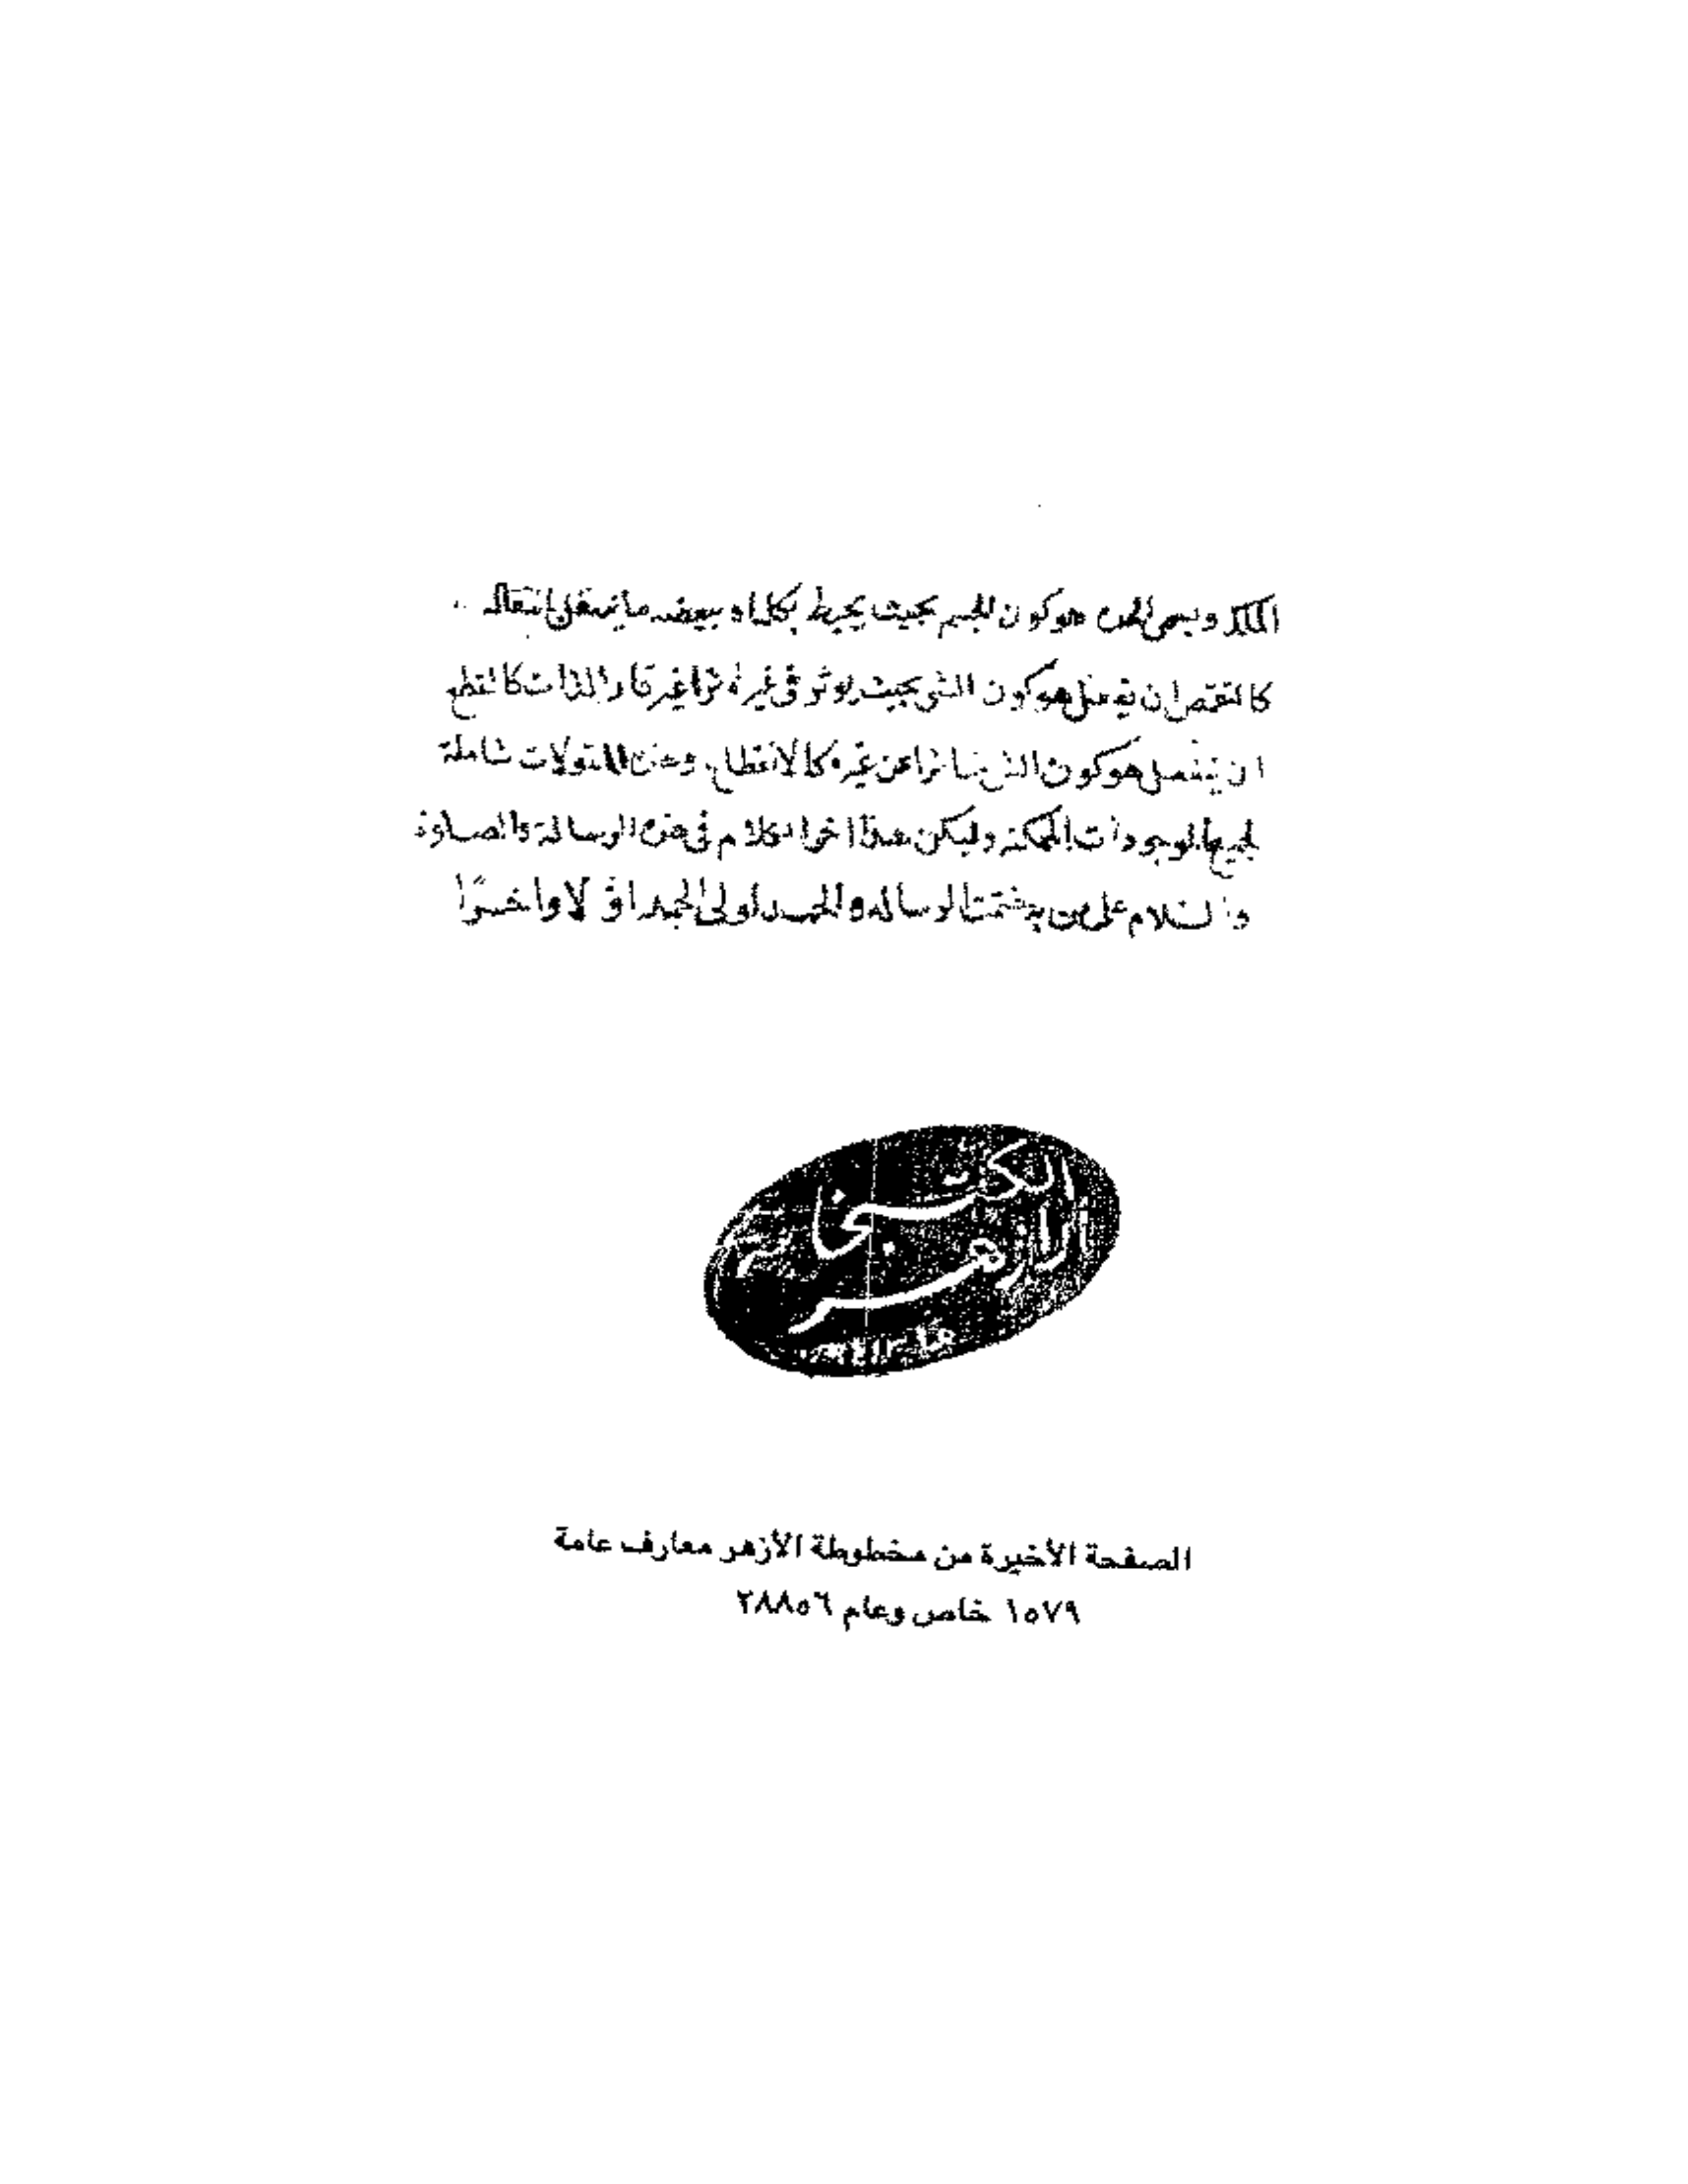 الملك ويسمى الجدة هو كون الجسم بحيث يحيط بكله او ببعضه ما ينتقل بانتقاله
كالتقمص ان يفعل هو كون الشي بحيث يوثر في غيره اثرا غير قار الذات كالقطع
ان ينفعل هو كون الشي متاثرا عن غيره كالانقطاع وهذه المقولات شاملة
لجميع الموجودات الممكنه وليكن هذا اخر الكلام في هذه الرسالة والصلوة
والسلام على من به ختمت الرساله والحمد لولي الحمد اولا واخرا
الكتبخانة
الازهر
الصفحة الأخيرة من مخطوطة الأزهر معارف عامة
١٥٧٩ خاص وعام ٢٨٨٥٦